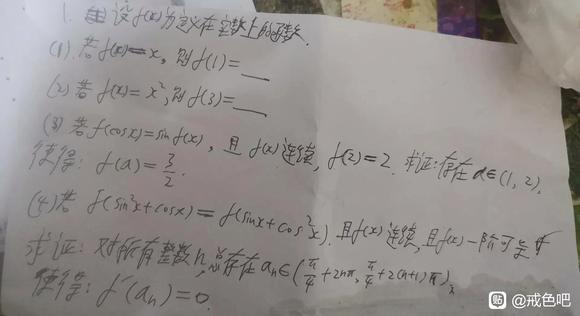 1. 设f(x)为定义在实数上的函数.
(1). 若f(x)=x, 则f(1)=__
(2) 若f(x)=x², 则f(3)=__
(3) 若f(cosx)=sinf(x), 且f(x)连续, f(2)=2. 求证:存在a∈(1,2),
使得: f(a)=3/2.
(4) 若 f(sin²x+cosx)=f(sinx+cos²x). 且f(x)连续, 且f(x)一阶可导
求证: 对所有整数n, 总存在aₙ∈(π/4+2nπ, π/4+2(n+1)π),
使得: f'(aₙ)=0.
贴 @戒色吧